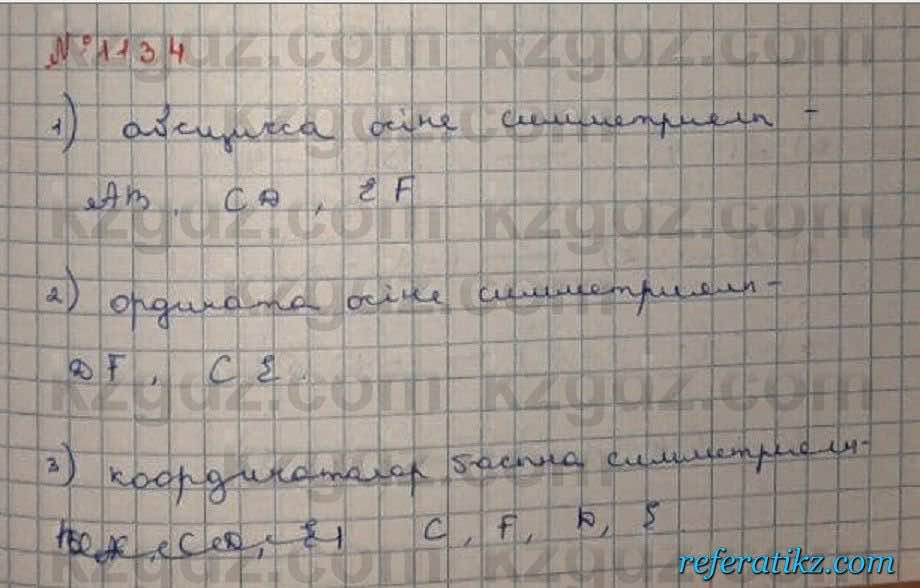 №1134
1) абсцисса осіне симметриялы -
AB, CD, EF
2) ордината осіне симметриялы -
DF, CE.
3) координаталар басына симметриялы-
C, F, D, E
kzgdz.com
referatikz.com